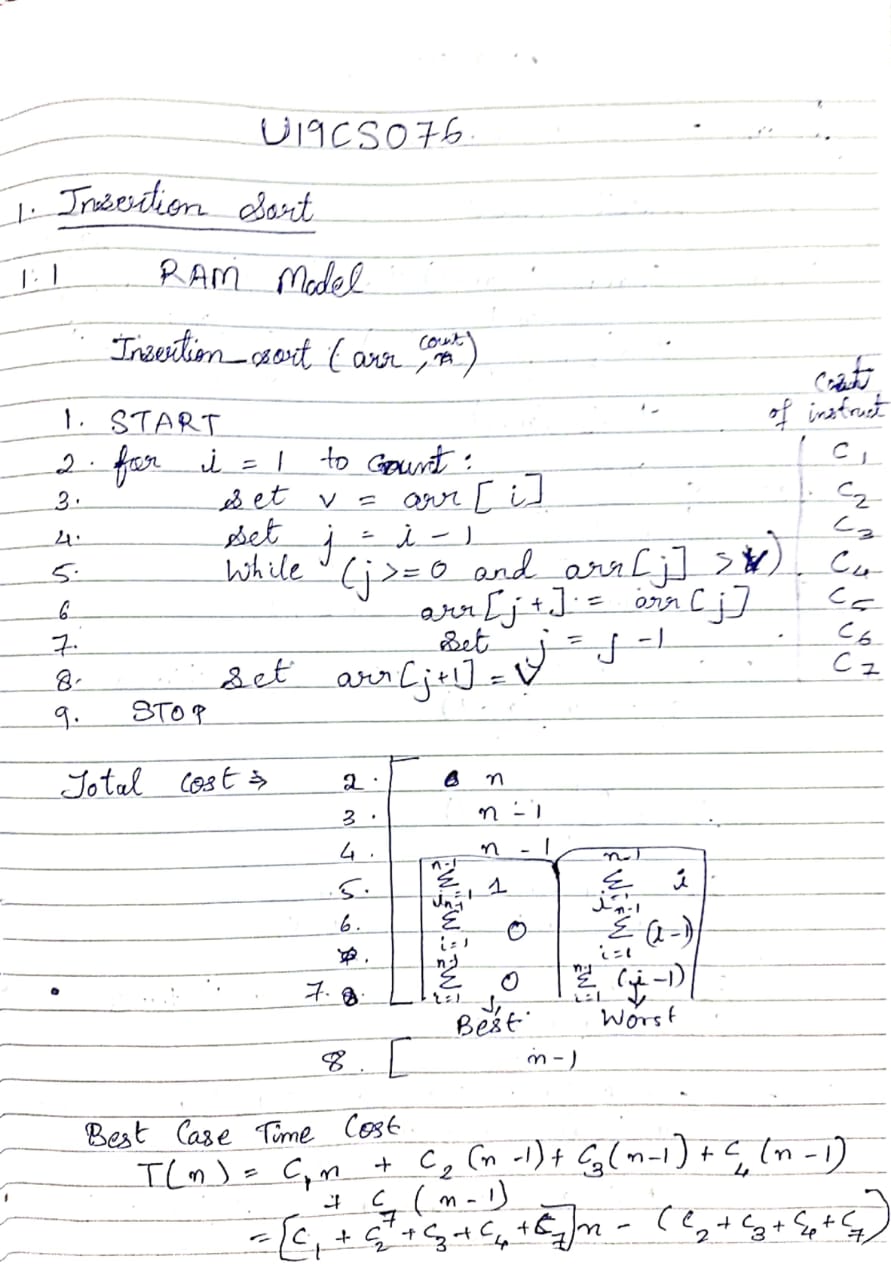 U19CS076
1. Insertion Sort
1.1 RAM Model
Insertion_sort (arr, count)
Cost
of instruct
1. START
2. for i = 1 to count : C1
3. set v = arr[i] C2
4. set j = i - 1 C3
5. While (j >= 0 and arr[j] > v) C4
6 arr[j+]. = arr[j] C5
7. Set j = j - 1 C6
8. set arr[j+1] = V C7
9. STOP
Total cost ⇒ 2. n
3. n - 1
4. n - 1
5. n-1 Σ i=1 1 n-1 Σ i=1 i
6. n-1 Σ i=1 0 n-1 Σ i=1 (i-1)
7. n-1 Σ i=1 0 n-1 Σ i=1 (i-1)
Best Worst
8. [ n-1
Best Case Time Cost
T(n) = C1n + C2(n-1) + C3(n-1) + C4(n-1)
+ C7(n-1)
= [C1 + C2 + C3 + C4 + C7]n - (C2 + C3 + C4 + C7)